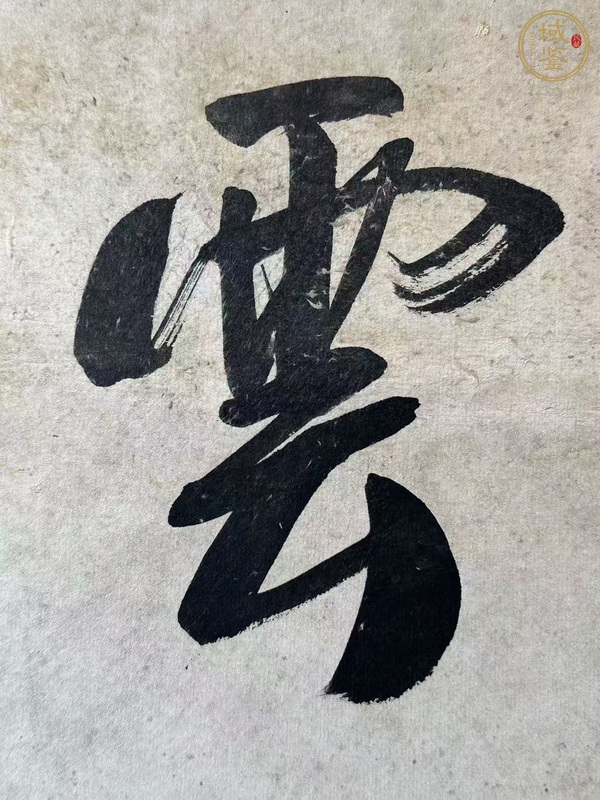 域鉴
雲